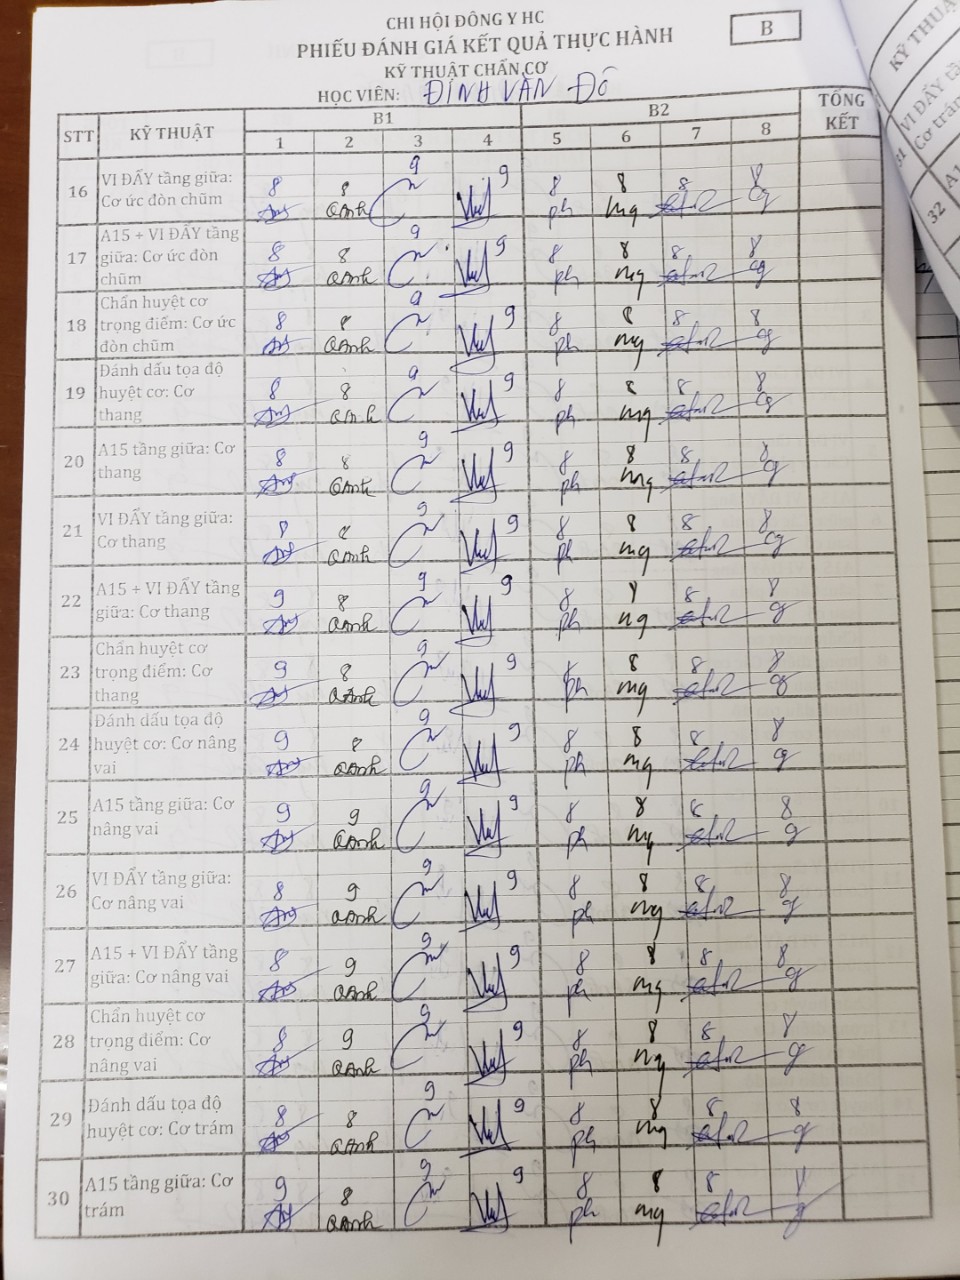 CHI HỘI ĐÔNG Y HC
PHIẾU ĐÁNH GIÁ KẾT QUẢ THỰC HÀNH
B
KỸ THUẬT CHẨN CƠ
HỌC VIÊN: ĐINH VĂN ĐÔ
STT KỸ THUẬT B1 B2 TỔNG KẾT
1 2 3 4 5 6 7 8
16 VI ĐẨY tầng giữa: Cơ ức đòn chũm 8 8 9 9 8 8 8 8
QAnh ph mg
17 A15 + VI ĐẨY tầng giữa: Cơ ức đòn chũm 8 8 9 9 8 8 8 8
QAnh ph mg
18 Chẩn huyệt cơ trọng điểm: Cơ ức đòn chũm 8 8 9 9 8 8 8 8
QAnh ph mg
19 Đánh dấu tọa độ huyệt cơ: Cơ thang 8 8 9 9 8 8 8 8
QAnh ph mg
20 A15 tầng giữa: Cơ thang 8 8 9 9 8 8 8 8
QAnh ph mg
21 VI ĐẨY tầng giữa: Cơ thang 8 8 9 9 8 8 8 8
QAnh ph mg
22 A15 + VI ĐẨY tầng giữa: Cơ thang 9 8 9 9 8 8 8 8
QAnh ph mg
23 Chẩn huyệt cơ trọng điểm: Cơ thang 9 8 9 9 8 8 8 8
QAnh ph mg
24 Đánh dấu tọa độ huyệt cơ: Cơ nâng vai 9 8 9 9 8 8 8 8
QAnh ph mg
25 A15 tầng giữa: Cơ nâng vai 9 9 9 9 8 8 8 8
QAnh ph mg
26 VI ĐẨY tầng giữa: Cơ nâng vai 8 9 9 9 8 8 8 8
QAnh ph mg
27 A15 + VI ĐẨY tầng giữa: Cơ nâng vai 8 9 9 9 8 8 8 8
QAnh ph mg
28 Chẩn huyệt cơ trọng điểm: Cơ nâng vai 8 9 9 9 8 8 8 8
QAnh ph mg
29 Đánh dấu tọa độ huyệt cơ: Cơ trám 8 8 9 9 8 8 8 8
QAnh ph mg
30 A15 tầng giữa: Cơ trám 9 8 9 9 8 8 8 8
QAnh ph mg
KỸ THUẬ
31 VI ĐẨY tầ
Cơ trám
32